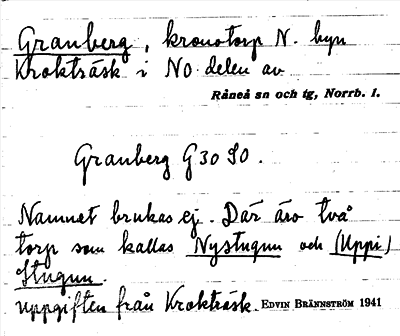 Granberg, kronotorp N. byn
Krokträsk i NO delen av
Råneå sn och tg, Norrb. l.
Granberg G30 SO.
Namnet brukas ej. Där äro två
torp som kallas Nystugun och (Uppi)
Stugun.
uppgiften från Krokträsk. EDVIN BRÄNNSTRÖM 1941